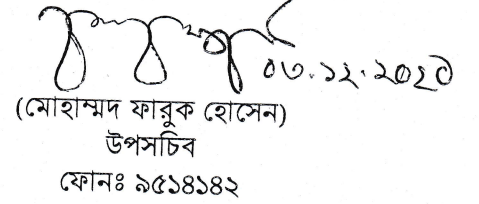 ০৩.১২.২০২০
(মোহাম্মদ ফারুক হোসেন)
উপসচিব
ফোনঃ ৯৫১৪১৪২